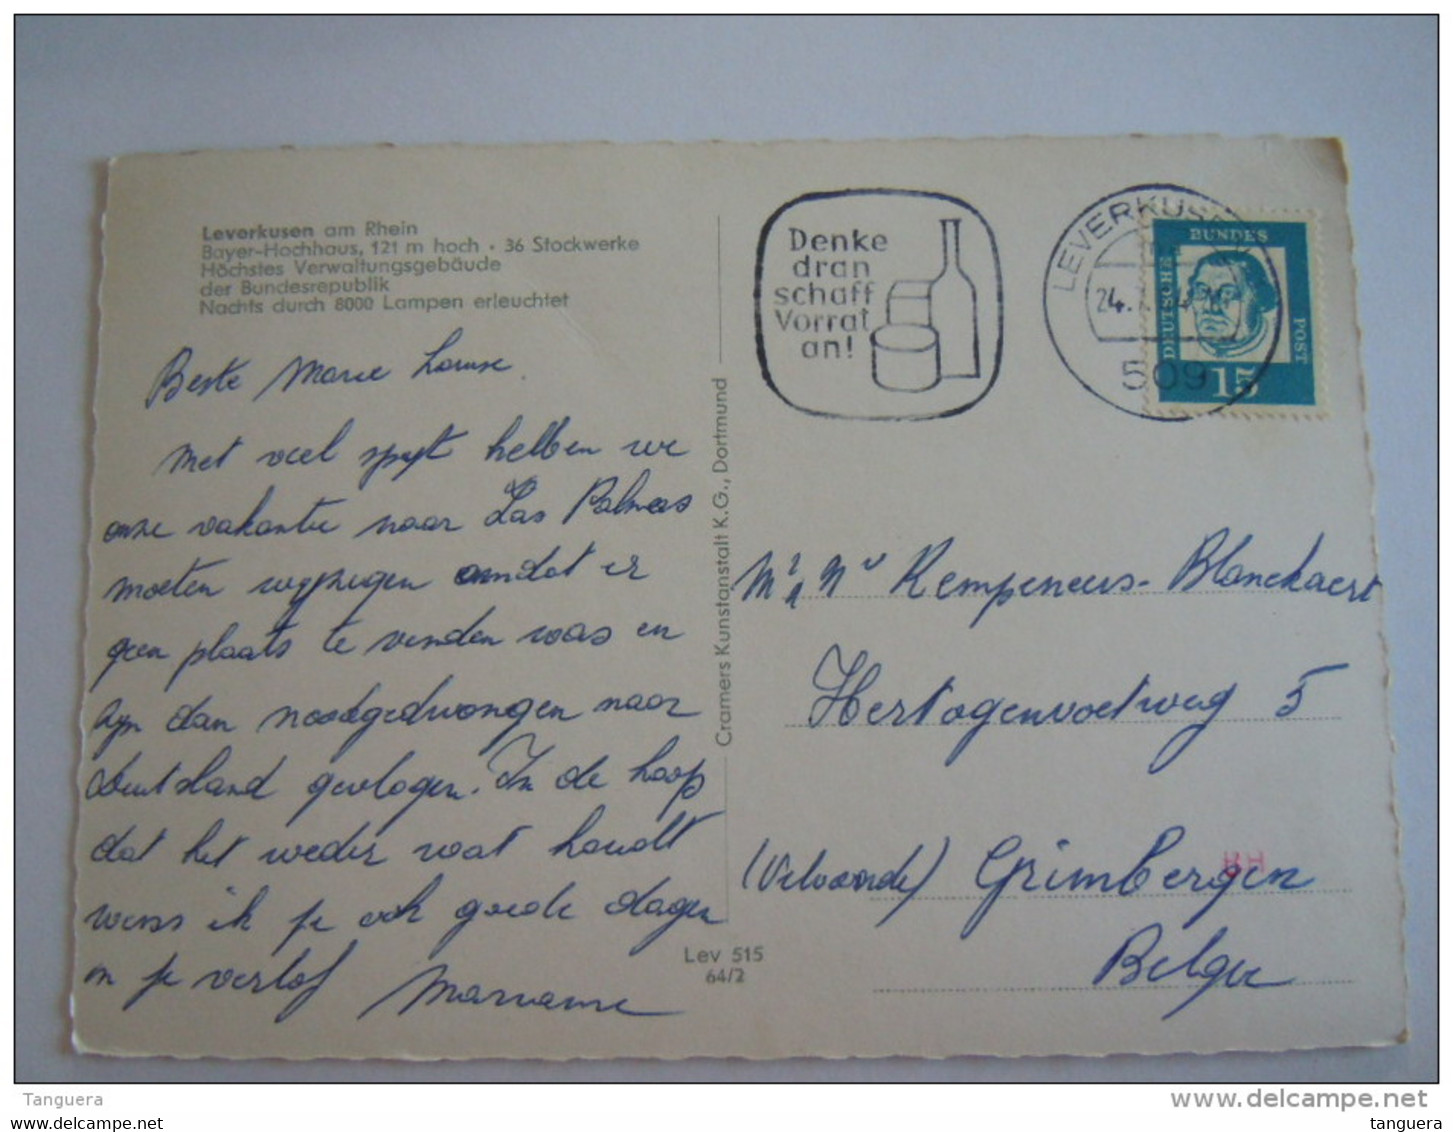 Leverkusen am Rhein
Bayer-Hochhaus, 121 m hoch · 36 Stockwerke
Höchstes Verwaltungsgebäude
der Bundesrepublik
Nachts durch 8000 Lampen erleuchtet
Beste Marie Louise
Met veel spijt hebben we
onze vakantie naar Las Palmas
moeten wijzigen omdat er
geen plaats te vinden was en
zijn dan noodgedwongen naar
Duitsland gevlogen. In de hoop
dat het weder wat houdt
wens ik je ook goede dagen
in je verlof Marianne
Cramers Kunstanstalt K.G., Dortmund
Lev 515
64/2
Denke
dran
schaff
Vorrat
an!
LEVERKUSEN
24.
509
DEUTSCHE
BUNDES
POST
15
Mr & Mv Kempeneers-Blanckaert
Hertogenvoetweg 5
(Vilvoorde) Grimbergen
BH
Belgie
Tanguera
www.delcampe.net
tanguera